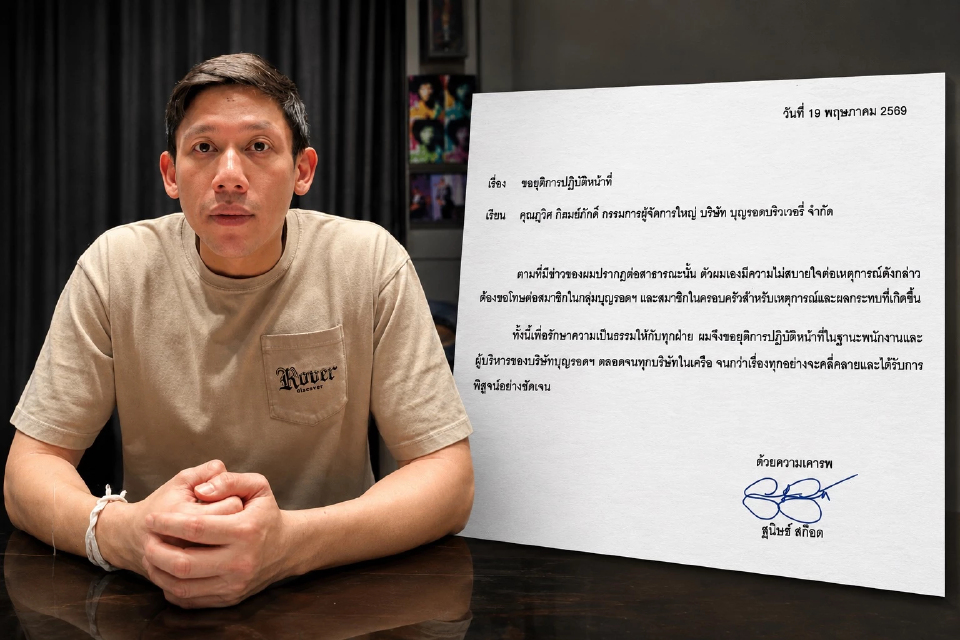 วันที่ 19 พฤษภาคม 2569
เรื่อง ขอยุติการปฏิบัติหน้าที่
เรียน คุณภูวิศ กิตมย์ภักดิ์ กรรมการผู้จัดการใหญ่ บริษัท บุญรอดบริวเวอรี่ จำกัด
ตามที่มีข่าวของผมปรากฏต่อสาธารณะนั้น ตัวผมเองมีความไม่สบายใจต่อเหตุการณ์ดังกล่าว
ต้องขอโทษต่อสมาชิกในกลุ่มบุญรอดฯ และสมาชิกในครอบครัวสำหรับเหตุการณ์และผลกระทบที่เกิดขึ้น
ทั้งนี้เพื่อรักษาความเป็นธรรมให้กับทุกฝ่าย ผมจึงขอยุติการปฏิบัติหน้าที่ในฐานะพนักงานและ
ผู้บริหารของบริษัทบุญรอดฯ ตลอดจนทุกบริษัทในเครือ จนกว่าเรื่องทุกอย่างจะคลี่คลายและได้รับการ
พิสูจน์อย่างชัดเจน
ด้วยความเคารพ
สุนิษฐ์ สก๊อต
Rover
discover